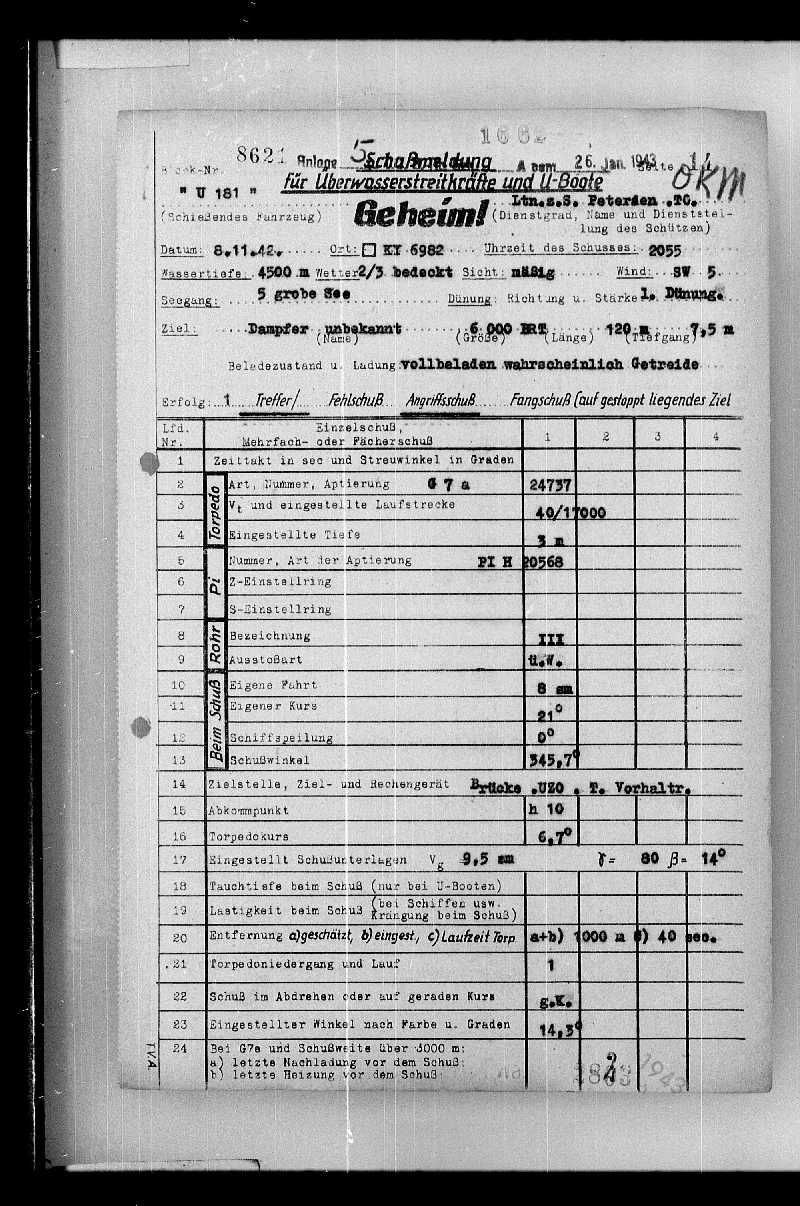 1662
Block-Nr. 8621 Anlage 5 Schußmeldung 26. Jan. 1943 Seite 14
für Überwasserstreitkräfte und U-Boote OKM
" U 181 " Ltn.z.S. Petersen .TO.
(Schießendes Fahrzeug) Geheim! (Dienstgrad, Name und Dienststel-
lung des Schützen)
Datum: 8.11.42. Ort: □ KY 6982 Uhrzeit des Schusses: 2055
Wassertiefe: 4500 m Wetter 2/3 bedeckt Sicht: mäßig Wind: SW 5
Seegang: 5 grobe See Dünung: Richtung u. Stärke l. Dünung.
Ziel: Dampfer unbekannt 6 000 BRT 120 m 7,5 m
(Name) (Größe) (Länge) (Tiefgang)
Beladezustand u. Ladung vollbeladen wahrscheinlich Getreide
Erfolg: 1 Treffer/ Fehlschuß Angriffsschuß Fangschuß (auf gestoppt liegendes Ziel
Lfd. Nr. Einzelschuß, Mehrfach- oder Fächerschuß 1 2 3 4
1 Zeittakt in sec und Streuwinkel in Graden
Torpedo
2 Art, Nummer, Aptierung G 7 a 24737
3 Vt und eingestellte Laufstrecke 40/17000
4 Eingestellte Tiefe 3 m
Pi
5 Nummer, Art der Aptierung PI H 20568
6 Z-Einstellring
7 S-Einstellring
Rohr
8 Bezeichnung III
9 Ausstoßart ü.W.
Beim Schuß
10 Eigene Fahrt 8 sm
11 Eigener Kurs 21°
12 Schiffspeilung 0°
13 Schußwinkel 345,7°
14 Zielstelle, Ziel- und Rechengerät Brücke .UZO . T. Vorhaltr.
15 Abkommpunkt h 10
16 Torpedokurs 6,7°
17 Eingestellt Schußunterlagen Vg 9,5 sm γ= 80 β= 14°
18 Tauchtiefe beim Schuß (nur bei U-Booten)
19 Lastigkeit beim Schuß (bei Schiffen usw. Krängung beim Schuß)
20 Entfernung a) geschätzt, b) eingest., c) Laufzeit Torp. a+b) 1000 m c) 40 sec.
21 Torpedoniedergang und Lauf 1
22 Schuß im Abdrehen oder auf geraden Kurs g.K.
23 Eingestellter Winkel nach Farbe u. Graden 14,3°
24 Bei G7e und Schußweite über 3000 m:
a) letzte Nachladung vor dem Schuß:
b) letzte Heizung vor dem Schuß:
TVA
2
1943